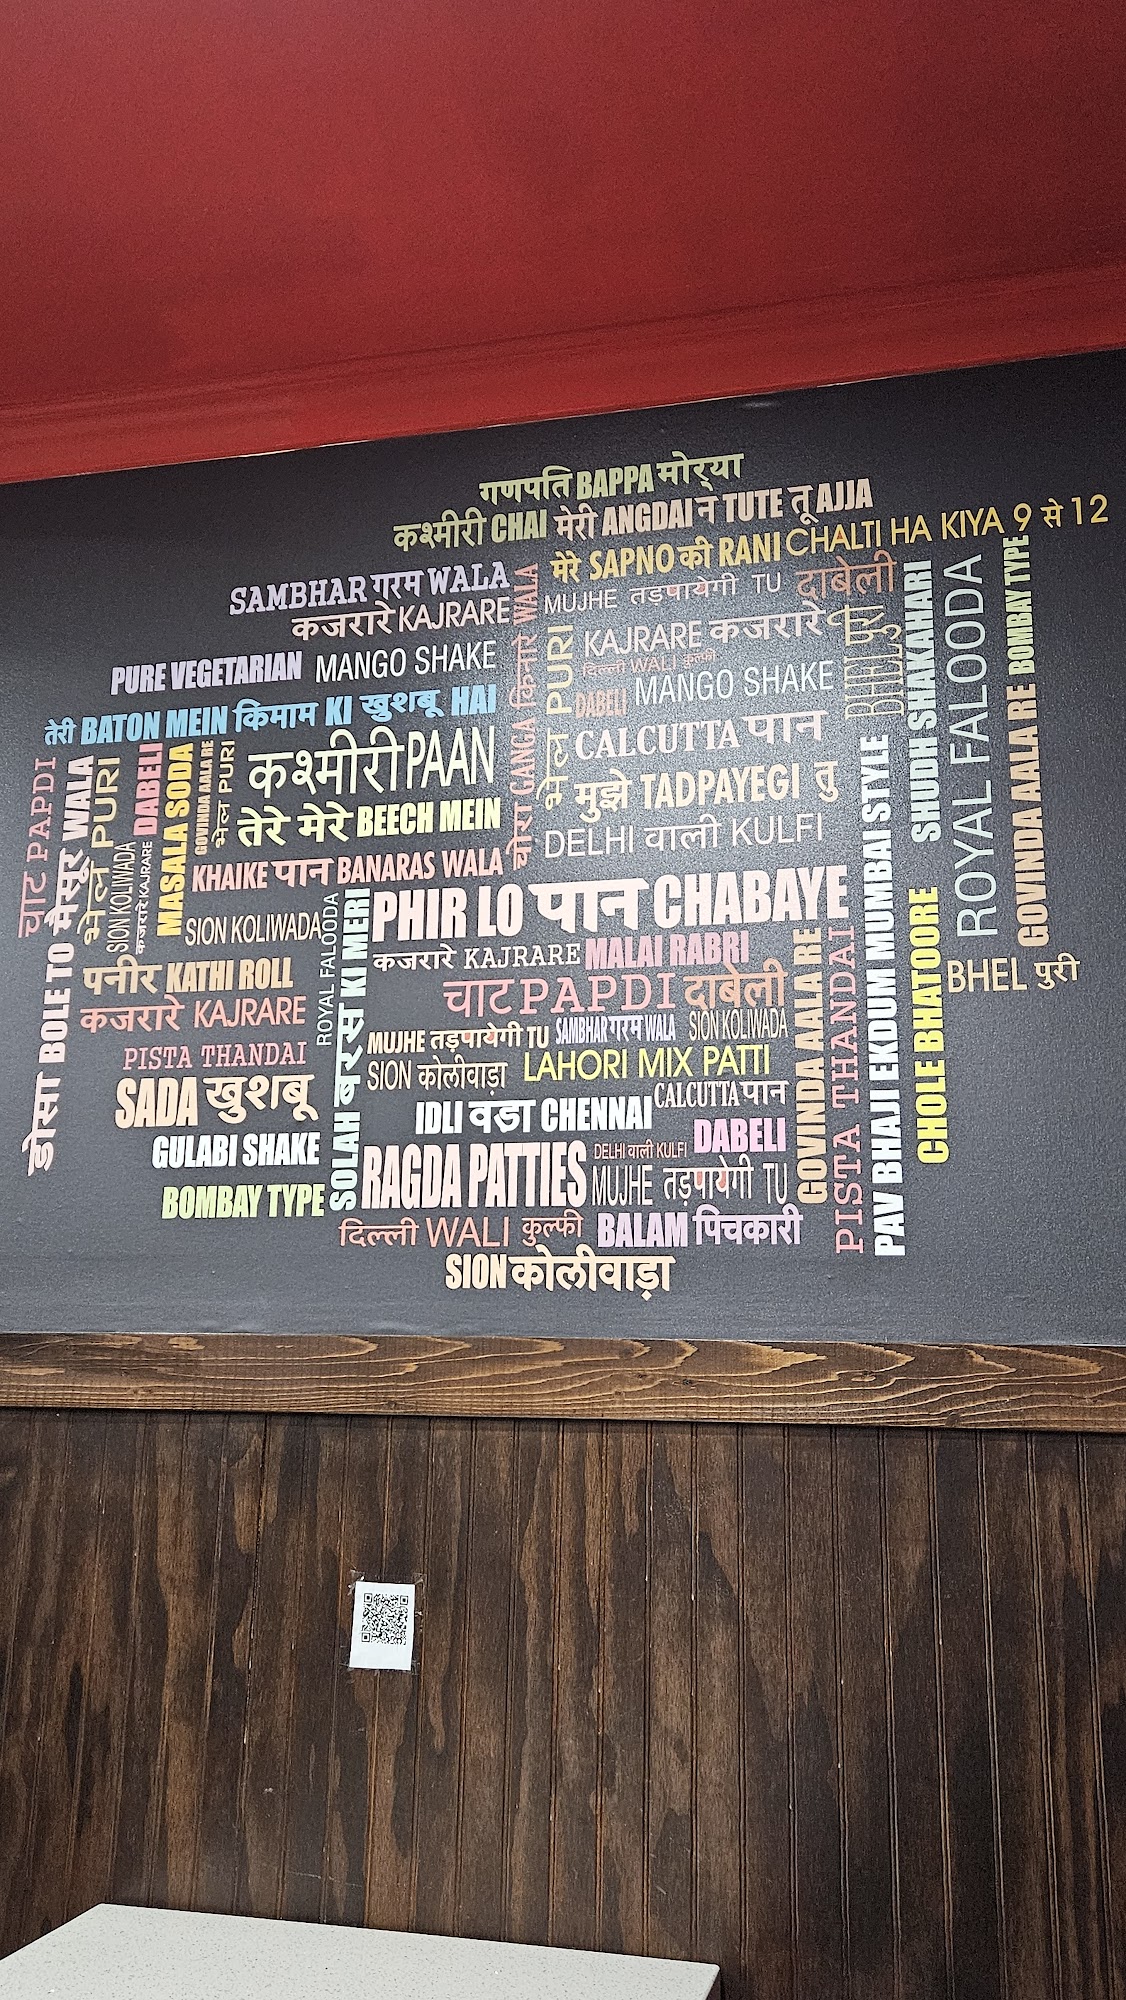 गणपति BAPPA मोर्‍या
कश्मीरी CHAI मेरी ANGDAI न TUTE तू AJJA
मेरे SAPNO की RANI CHALTI HA KIYA 9 से 12
SAMBHAR गरम WALA
MUJHE तड़पायेगी TU दाबेली
कजरारे KAJRARE
KAJRARE कजरारे
दिल्ली WALI कुल्फी
PURE VEGETARIAN MANGO SHAKE
DABELI MANGO SHAKE
तेरी BATON MEIN किमाम KI खुशबू HAI
CALCUTTA पान
कश्मीरी PAAN
मुझे TADPAYEGI तु
तेरे मेरे BEECH MEIN
DELHI वाली KULFI
KHAIKE पान BANARAS WALA
छोरा GANGA किनारे WALA
भेल PURI
BHEL पुरी
SHUDH SHAKAHARI
ROYAL FALOODA
BOMBAY TYPE
GOVINDA AALA RE
चाट PAPDI
डोसा BOLE TO मैसूर WALA
भेल PURI
SION KOLIWADA
DABELI
कजरारे KAJRARE
MASALA SODA
GOVINDA AALA RE
भेल PURI
SION KOLIWADA
ROYAL FALOODA
SOLAH बरस KI MERI
PHIR LO पान CHABAYE
कजरारे KAJRARE MALAI RABRI
पनीर KATHI ROLL
चाट PAPDI दाबेली
कजरारे KAJRARE
MUJHE तड़पायेगी TU SAMBHAR गरम WALA SION KOLIWADA
PISTA THANDAI
SION कोलीवाड़ा LAHORI MIX PATTI
SADA खुशबू
CALCUTTA पान
IDLI वडा CHENNAI
GULABI SHAKE
DELHI वाली KULFI DABELI
RAGDA PATTIES MUJHE तड़पायेगी TU
BOMBAY TYPE
दिल्ली WALI कुल्फी BALAM पिचकारी
SION कोलीवाड़ा
GOVINDA AALA RE
PISTA THANDAI
PAV BHAJI EKDUM MUMBAI STYLE
CHOLE BHATOORE
BHEL पुरी